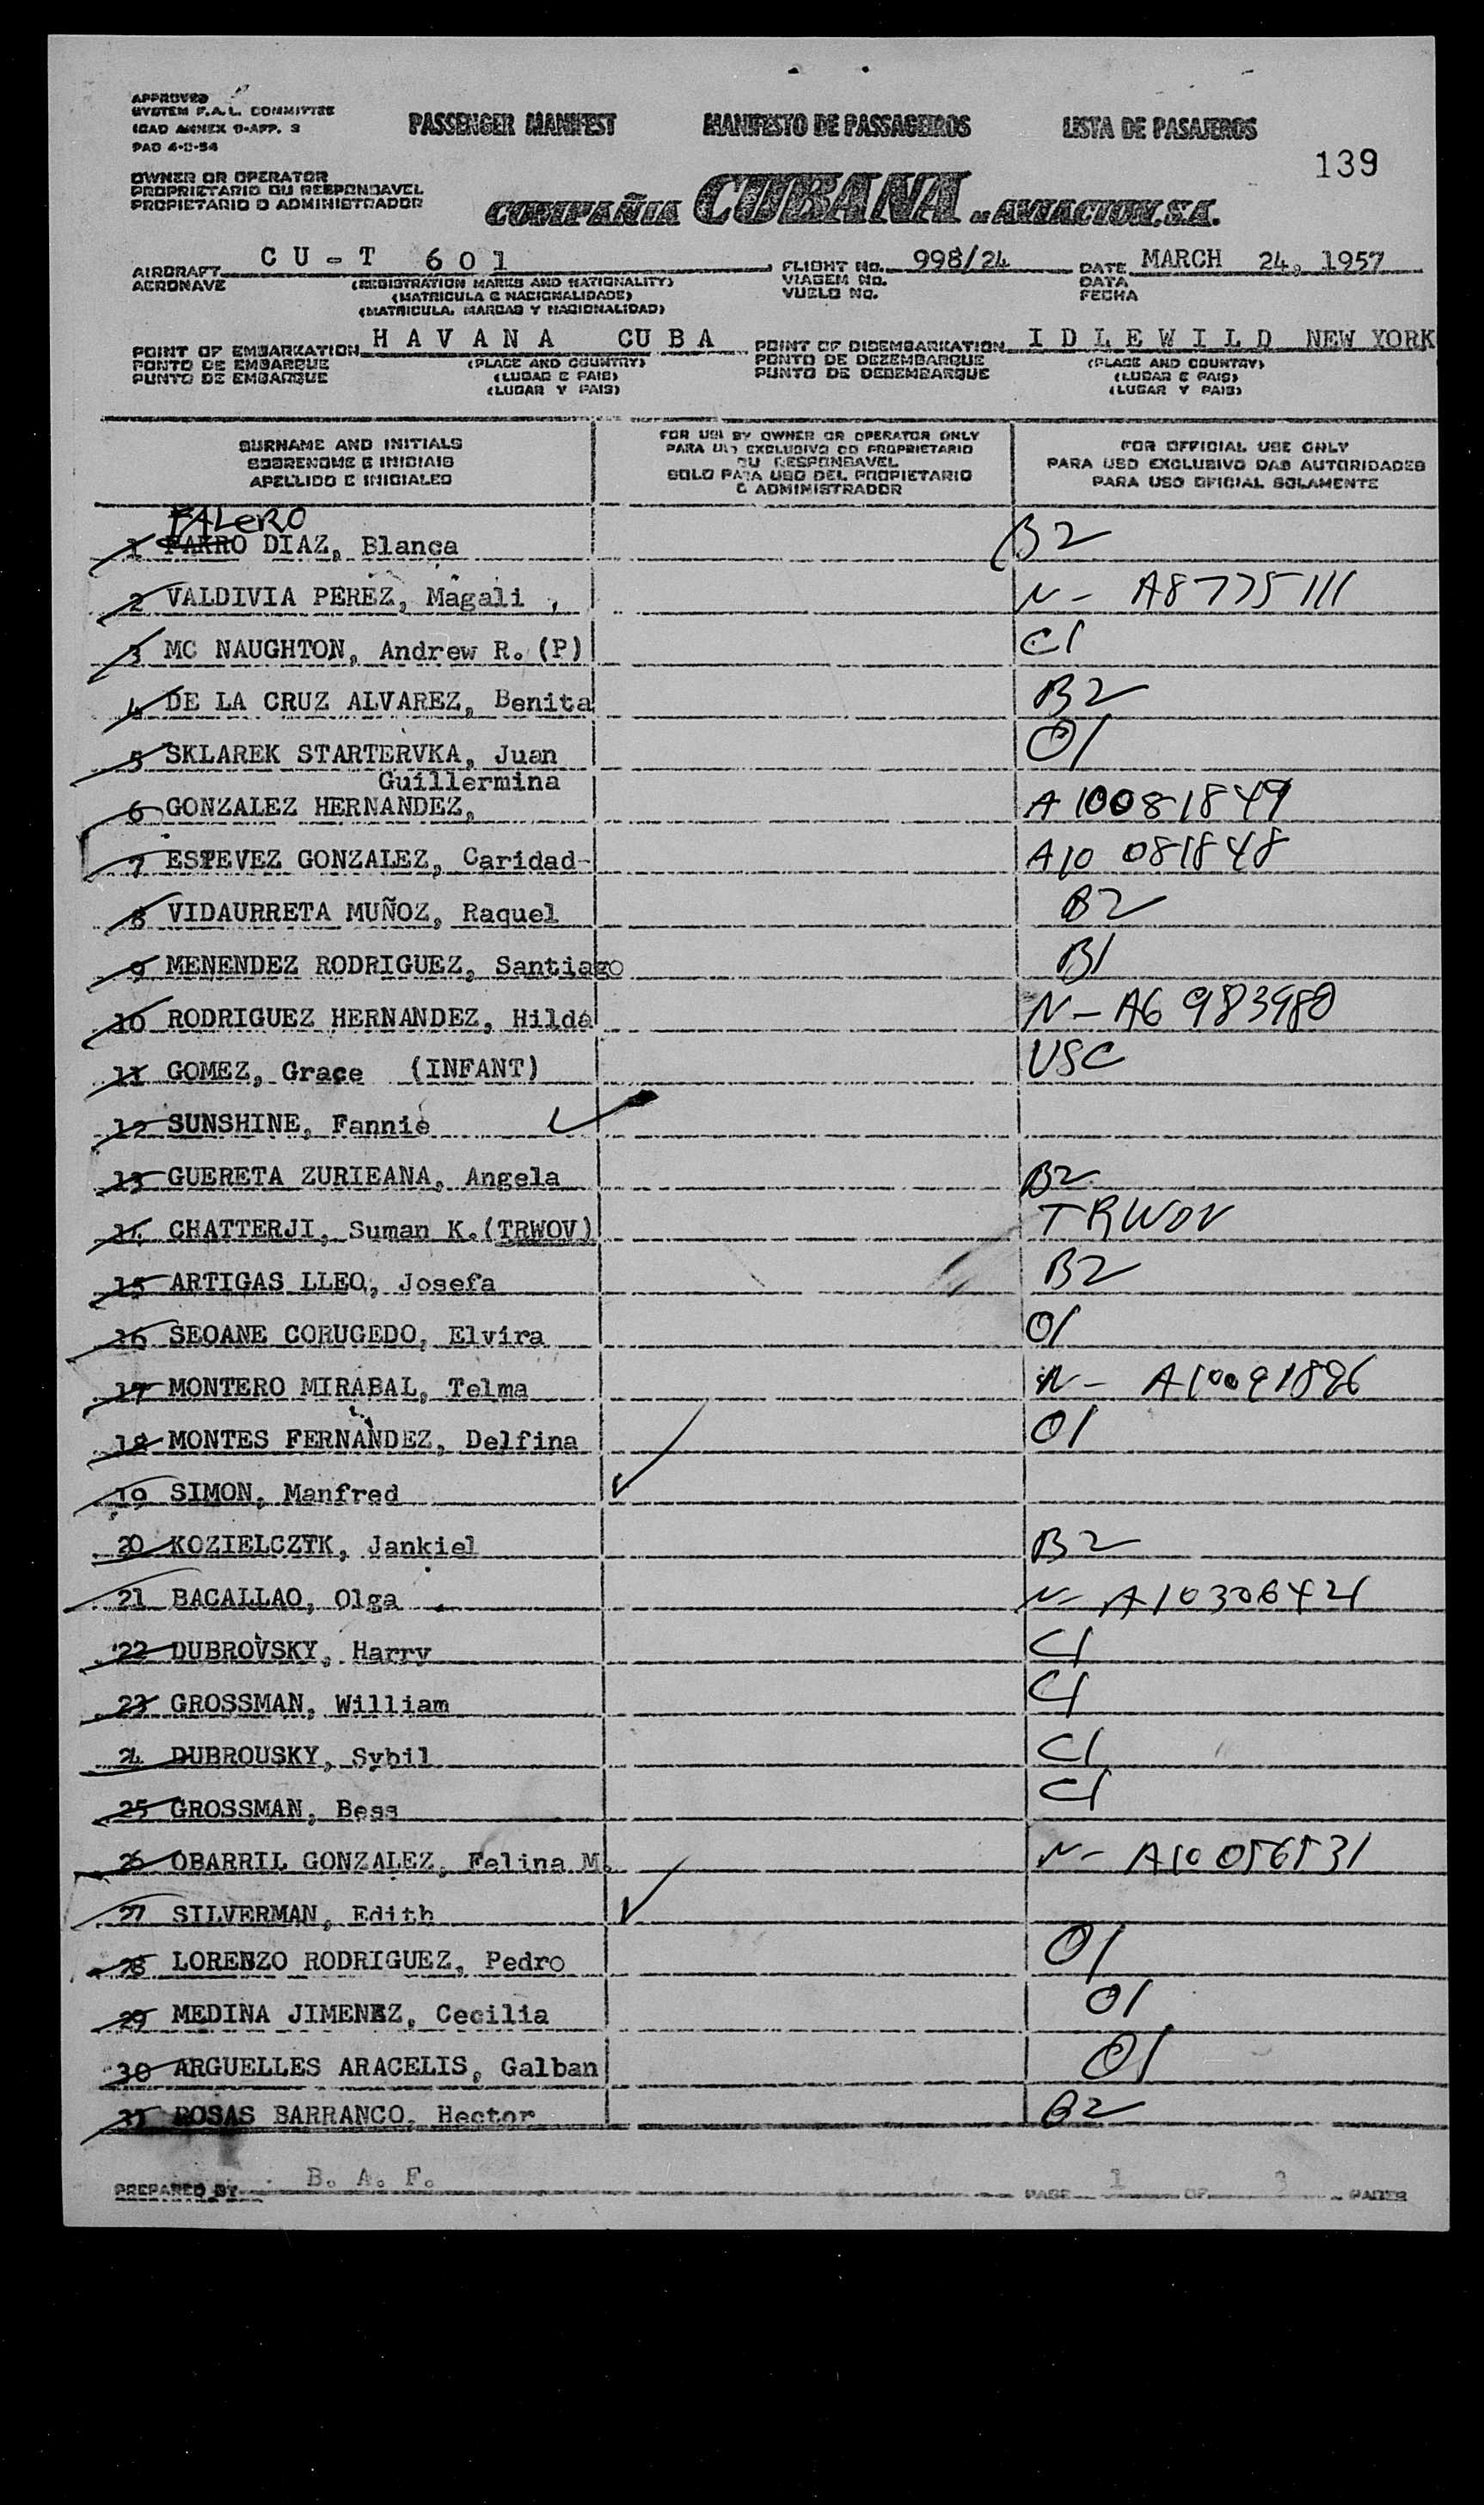 APPROVED
SYSTEM F.A.L. COMMITTEE
ICAO ANNEX 9-APP. 3
PAD 4-C-54
PASSENGER MANIFEST MANIFESTO DE PASSAGEIROS LISTA DE PASAJEROS
139
OWNER OR OPERATOR
PROPRIETARIO OU RESPONSAVEL
PROPIETARIO O ADMINISTRADOR
COMPAÑIA CUBANA DE AVIACION, S.A.
AIRCRAFT CU-T 601 FLIGHT No. 998/24 DATE MARCH 24, 1957
AERONAVE (REGISTRATION MARKS AND NATIONALITY) VIAGEM No. DATA
(MATRICULA E NACIONALIDADE) VUELO No. FECHA
(MATRICULA, MARCAS Y NACIONALIDAD)
POINT OF EMBARKATION HAVANA CUBA POINT OF DISEMBARKATION IDLEWILD NEW YORK
PONTO DE EMBARQUE (PLACE AND COUNTRY) PONTO DE DEZEMBARQUE (PLACE AND COUNTRY)
PUNTO DE EMBARQUE (LUGAR E PAIS) PUNTO DE DESEMBARQUE (LUGAR E PAIS)
(LUGAR Y PAIS) (LUGAR Y PAIS)
SURNAME AND INITIALS
SOBRENOME E INICIAIS
APELLIDO E INICIALES
FOR USE BY OWNER OR OPERATOR ONLY
PARA USO EXCLUSIVO DO PROPRIETARIO
OU RESPONSAVEL
SOLO PARA USO DEL PROPIETARIO
O ADMINISTRADOR
FOR OFFICIAL USE ONLY
PARA USO EXCLUSIVO DAS AUTORIDADES
PARA USO OFICIAL SOLAMENTE
FALERO
1 FARRO DIAZ, Blanca B2
2 VALDIVIA PEREZ, Magali N- A8775111
3 MC NAUGHTON, Andrew R. (P) C1
4 DE LA CRUZ ALVAREZ, Benita B2
5 SKLAREK STARTERVKA, Juan O1
Guillermina
6 GONZALEZ HERNANDEZ, A10081849
7 ESTEVEZ GONZALEZ, Caridad- A10 081848
8 VIDAURRETA MUÑOZ, Raquel B2
9 MENENDEZ RODRIGUEZ, Santiago B1
10 RODRIGUEZ HERNANDEZ, Hilda N- A6 983980
11 GOMEZ, Grace (INFANT) USC
12 SUNSHINE, Fannie
13 GUERETA ZURIEANA, Angela B2
14 CHATTERJI, Suman K. (TRWOV) TRWOV
15 ARTIGAS LLEO, Josefa B2
16 SEOANE CORUGEDO, Elvira O1
17 MONTERO MIRABAL, Telma N- A10091896
18 MONTES FERNANDEZ, Delfina O1
19 SIMON, Manfred
20 KOZIELCZYK, Jankiel B2
21 BACALLAO, Olga N- A10306421
22 DUBROVSKY, Harry C1
23 GROSSMAN, William C1
24 DUBROUSKY, Sybil C1
25 GROSSMAN, Bess C1
26 OBARRIL GONZALEZ, Felina M. N- A10056531
27 SILVERMAN, Edith
28 LORENZO RODRIGUEZ, Pedro O1
29 MEDINA JIMENEZ, Cecilia O1
30 ARGUELLES ARACELIS, Galban O1
31 ROSAS BARRANCO, Hector B2
PREPARED BY B. A. F. PAGE 1 OF PAGES